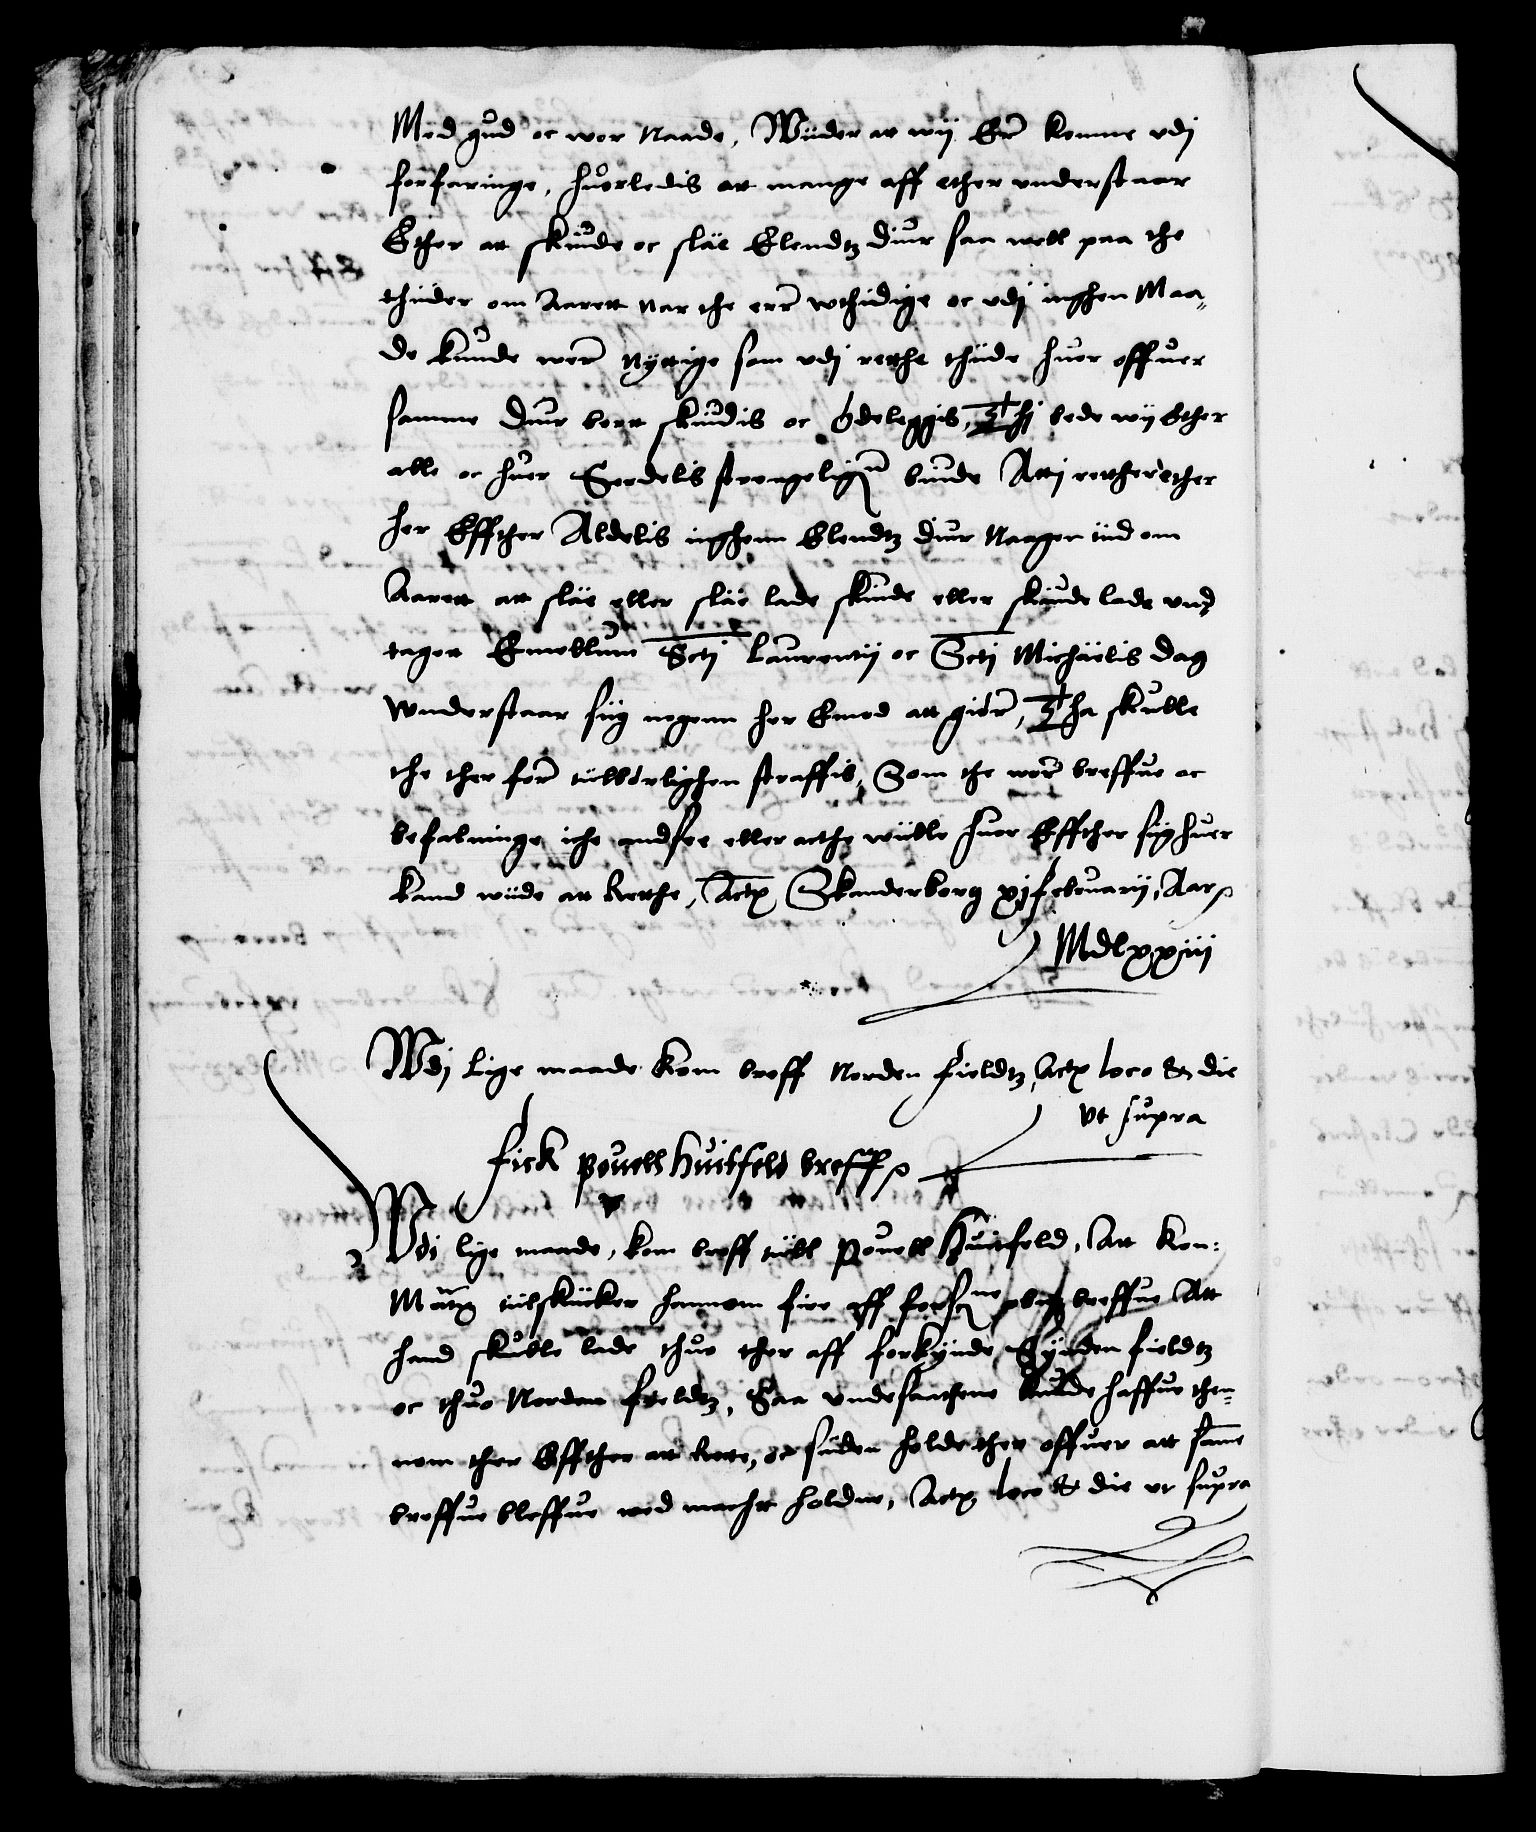 Med gud oc wor Naade, Wiider at wij Er kommne vdj
forfaringe, huorledis at mange aff ether vnderstaar
Ether at skiude oc slae Elendtz diur saa well paa the
thiider om Aarett nar the err wthidige oc vdj inghen Maa,
de kunde wer nyttige som vdj retthe thiide huor offuer
samme diur bortt skiudis oc ødeleggis, Thj bede wij Ether
alle oc huer Serdelis strengeligen biude Atti retther ether
her Effther Aldelis inghenn Elendtz diur Naagen tiid om
Aarett att slae eller slae lade skiude eller skiude lade vnd
tagen Emellum Scti Laurentij oc Scti Michaelis dag
Wnderstaar siig nogenn her Emod att giør, Tha skulle
the ther for tiilbørlighen straffis, Som the wor breffue oc
befalninge iche andsee eller acthe wiille huor Effther siig huer
kand wiide at Retthe, Actx Skanderborg xj februarij, Aar
Mdlxxiii
Wdj lige maade kom breff Norden fieldtz, Actx loco & die
vt supra
fick pouell huitfeld breff
Wdi lige maade, kom breff tiill Pouell Huitfeld, Att Kon:
Matx tiilskiicker hannom fire aff forsne obne breffue Att
hand skulle lade thuo ther aff forkynde Synden fieldtz
oc thuo Norden fieldtz, Saa vndersaathene kunde haffue then¬
nom ther Effther at Rette, oc siiden holde ther offuer att same
breffue bleffue wed macht holdne, Actx loco & die vt supra